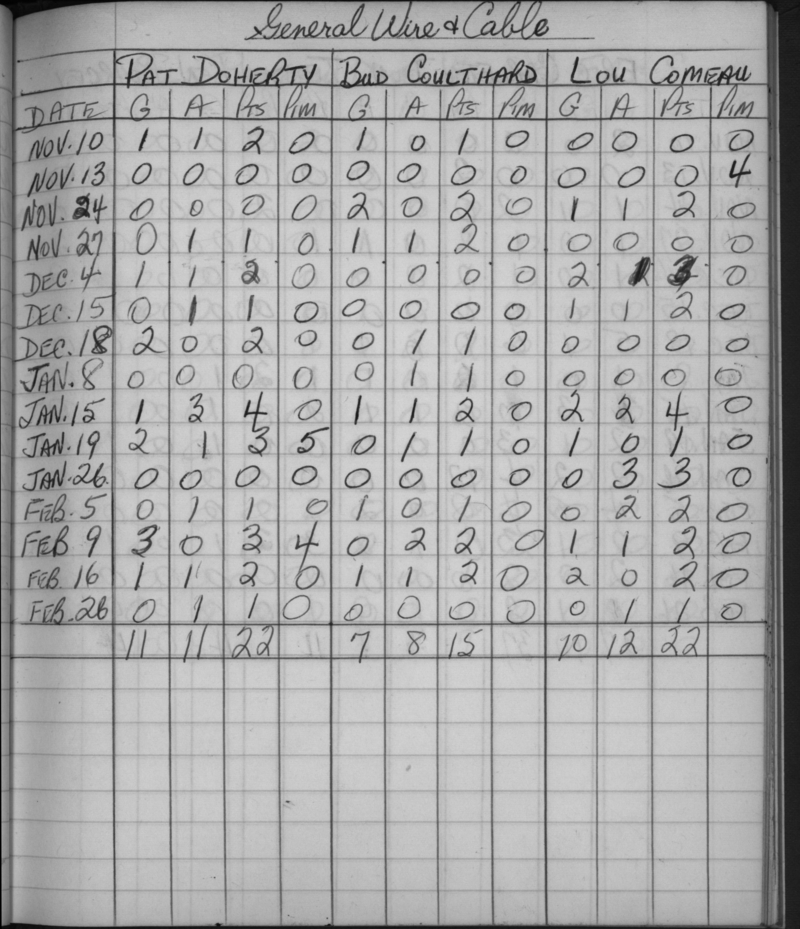 General Wire & Cable
PAT DOHERTY BUD COULTHARD LOU COMEAU
DATE G A PTS PIM G A PTS PIM G A PTS PIM
NOV. 10 1 1 2 0 1 0 1 0 0 0 0 0
NOV. 13 0 0 0 0 0 0 0 0 0 0 0 4
NOV. 24 0 0 0 0 2 0 2 0 1 1 2 0
NOV. 27 0 1 1 0 1 1 2 0 0 0 0 0
DEC. 4 1 1 2 0 0 0 0 0 2 1 3 0
DEC. 15 0 1 1 0 0 0 0 0 1 1 2 0
DEC. 18 2 0 2 0 0 1 1 0 0 0 0 0
JAN. 8 0 0 0 0 0 1 1 0 0 0 0 0
JAN. 15 1 3 4 0 1 1 2 0 2 2 4 0
JAN. 19 2 1 3 5 0 1 1 0 1 0 1 0
JAN. 26. 0 0 0 0 0 0 0 0 0 3 3 0
FEB. 5 0 1 1 0 1 0 1 0 0 2 2 0
FEB 9 3 0 3 4 0 2 2 0 1 1 2 0
FEB 16 1 1 2 0 1 1 2 0 2 0 2 0
FEB. 26 0 1 1 0 0 0 0 0 0 1 1 0
11 11 22 7 8 15 10 12 22